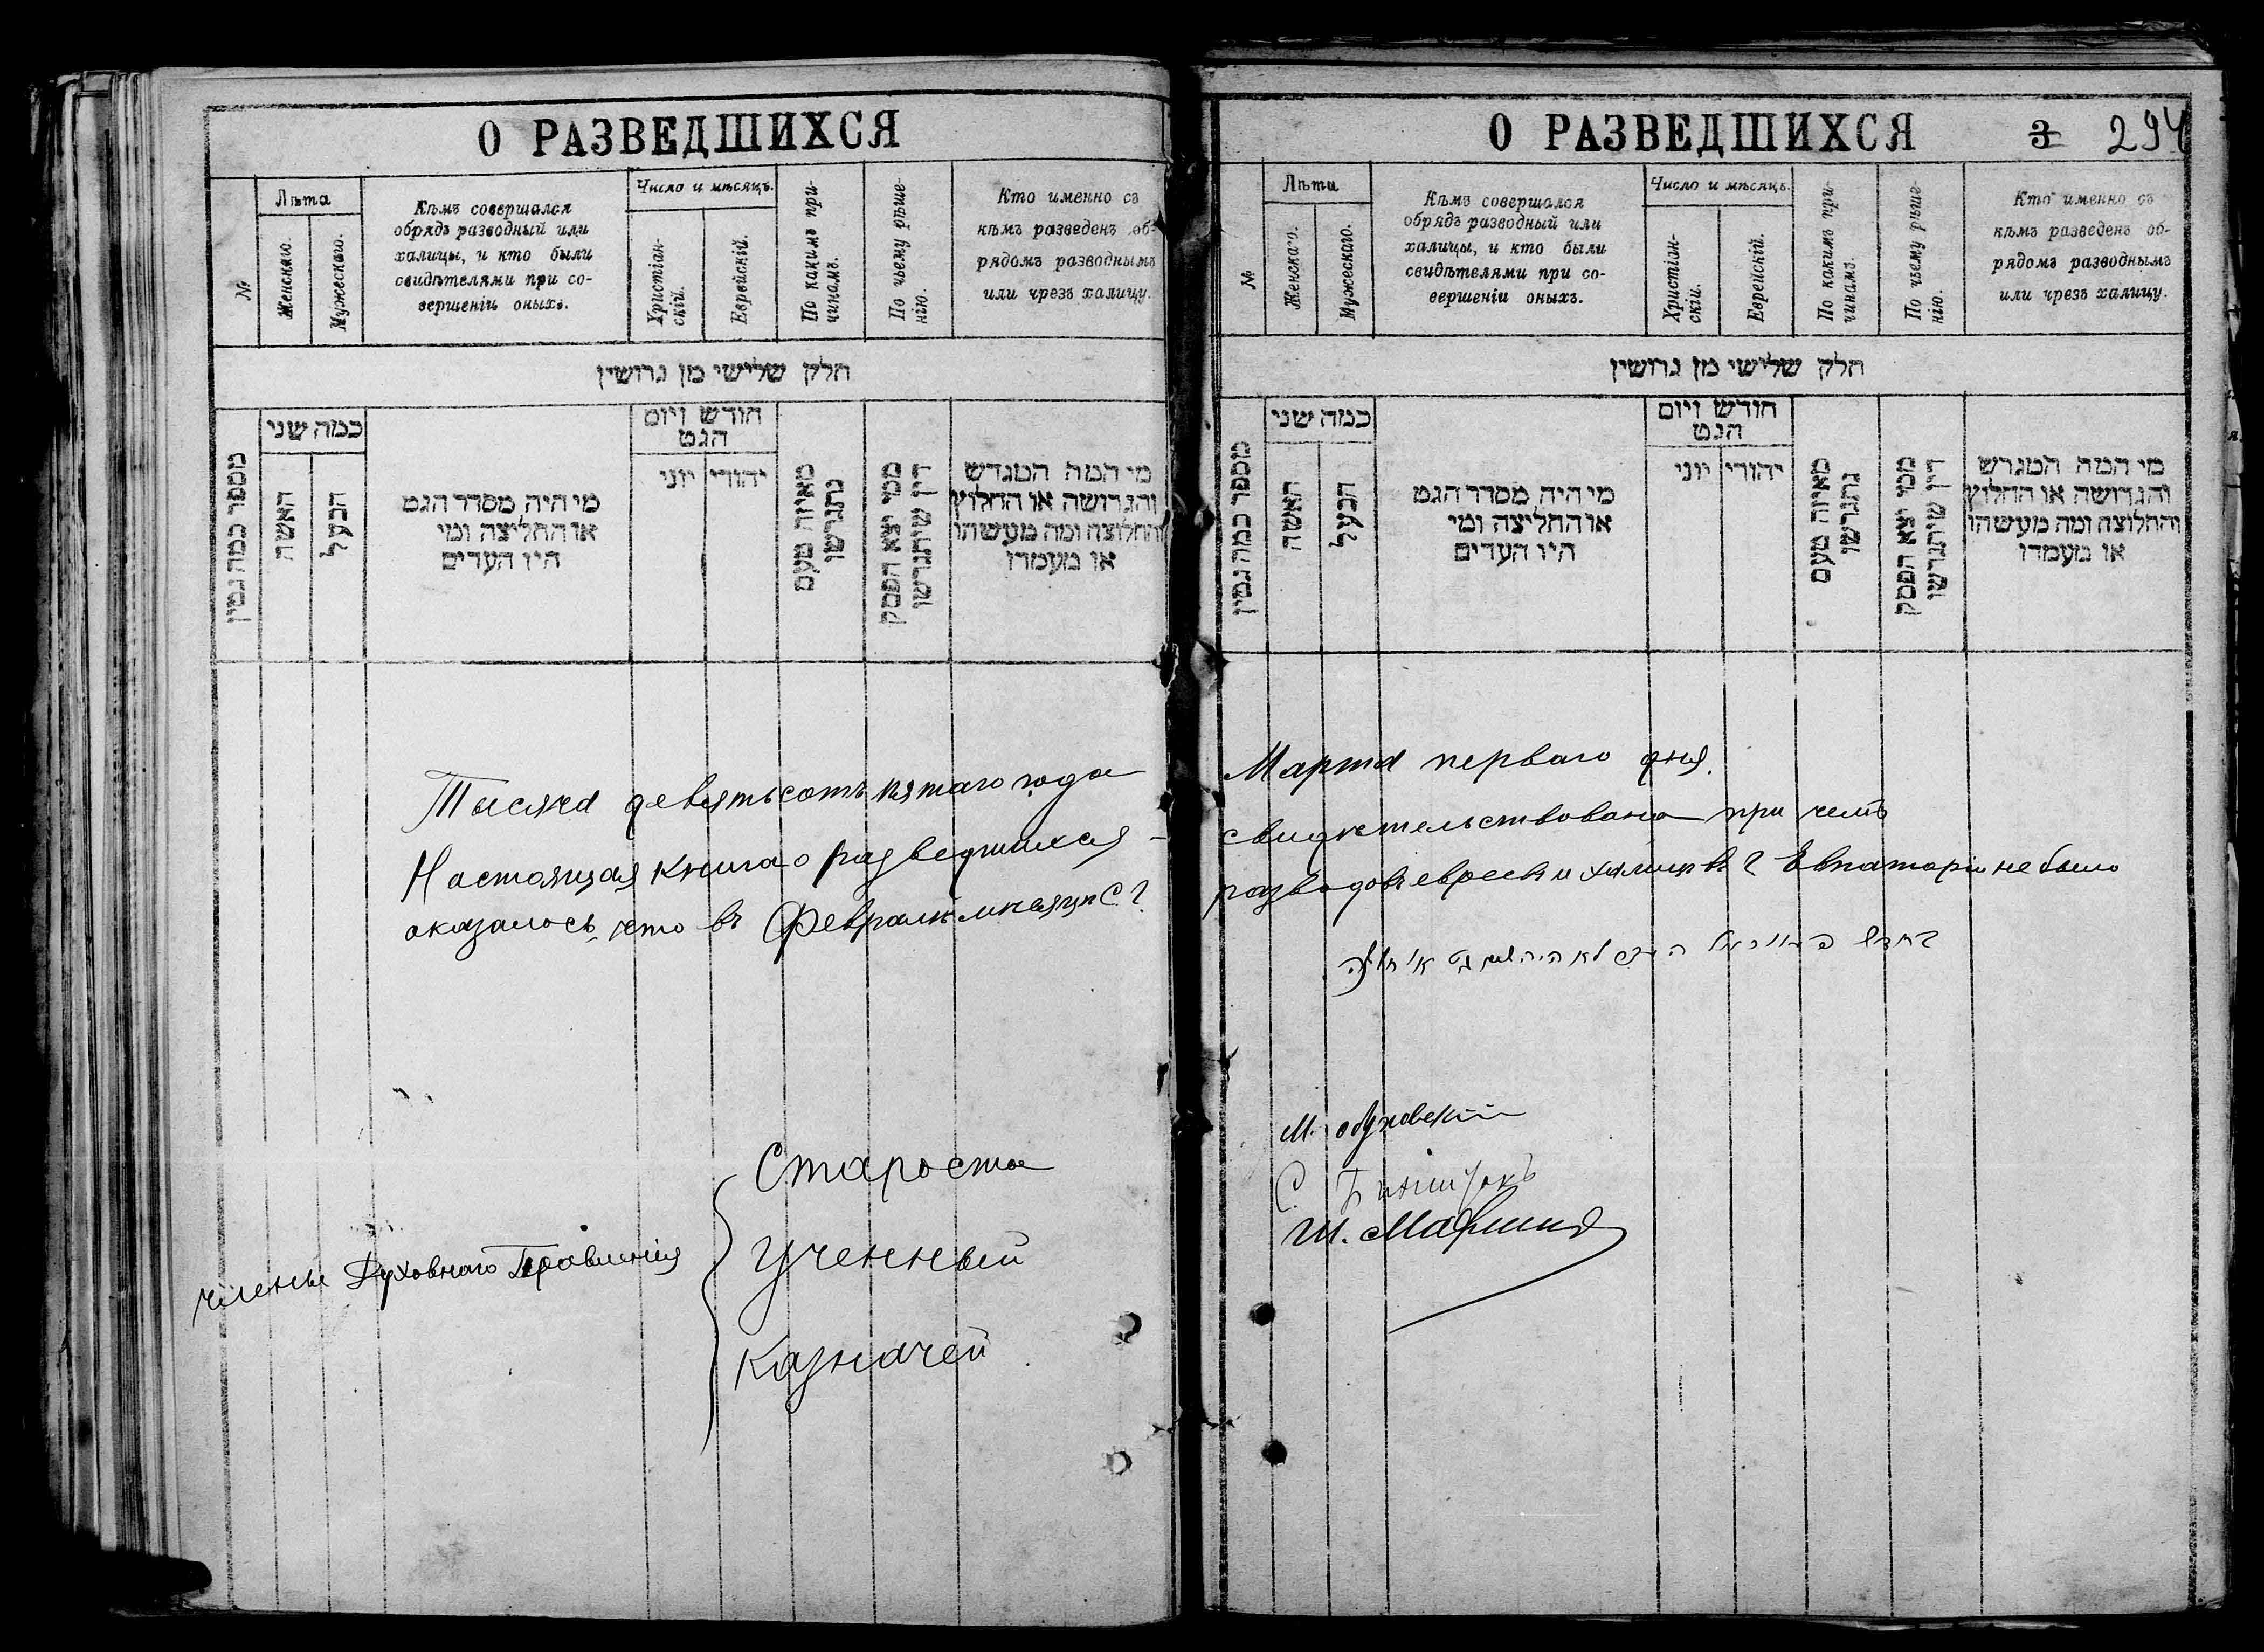 О РАЗВЕДШИХСЯ
№
Лѣта
Женскаго.
Мужескаго.
Кѣмъ совершался
обрядъ разводный или
халицы, и кто были
свидѣтелями при со-
вершеніи оныхъ.
Число и мѣсяцъ.
Христіан-
скій.
Еврейскій.
По какимъ при-
чинамъ.
По чьему рѣше-
нію.
Кто именно съ
кѣмъ разведенъ об-
рядомъ разводнымъ
или чрезъ халицу.
חלק שלישי מן גרושין
מספר כמה גטין
כמה שני
האשה
הבעל
מי היה מסדר הגט
או החליצה ומי
היו העדים
חודש ויום
הגט
יהודי
יוני
מאיזה טעם
נתגרשו
ממי יצא הפסק
דין שיתגרשו
מי המה המגרש
והגרושה או החלוץ
והחלוצה ומה מעשהו
או מעמדו
Тысяча девятьсотъ пятаго года
Настоящая книга о разведшихся
оказалось, что въ Февралѣ мѣсяцѣ с. г.
Члены Духовнаго Правленія
Староста
Ученный
Казначей
О РАЗВЕДШИХСЯ
3 294
№
Лѣта
Женскаго.
Мужескаго.
Кѣмъ совершался
обрядъ разводный или
халицы, и кто были
свидѣтелями при со-
вершеніи оныхъ.
Число и мѣсяцъ.
Христіан-
скій.
Еврейскій.
По какимъ при-
чинамъ.
По чьему рѣше-
нію.
Кто именно съ
кѣмъ разведенъ об-
рядомъ разводнымъ
или чрезъ халицу.
חלק שלישי מן גרושין
מספר כמה גטין
כמה שני
האשה
הבעל
מי היה מסדר הגט
או החליצה ומי
היו העדים
חודש ויום
הגט
יהודי
יוני
מאיזה טעם
נתגרשו
ממי יצא הפסק
דין שיתגרשו
מי המה המגרש
והגרושה או החלוץ
והחלוצה ומה מעשהו
או מעמדו
Марта перваго дня
свидѣтельствована при чемъ
разводовъ евреевъ и халицъ въ г Евпаторіи не было
לא היה
М. Обуховскій
С.
Ш.